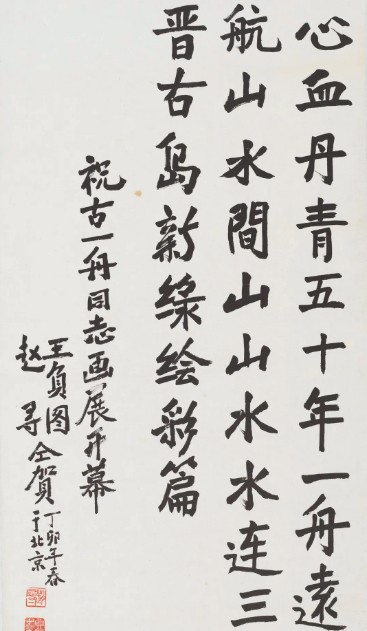 心血丹青五十年一舟遠
航山水間山山水水连三
晋古島新緑绘彩篇
祝古一舟同志画展开幕
王負图
赵寻
仝賀
丁卯年春
于北京